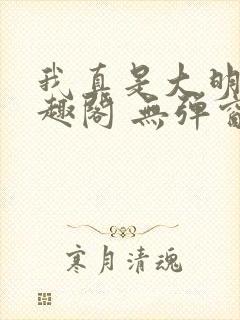 我真是大明
趣閣 無彈窗
寒月清魂